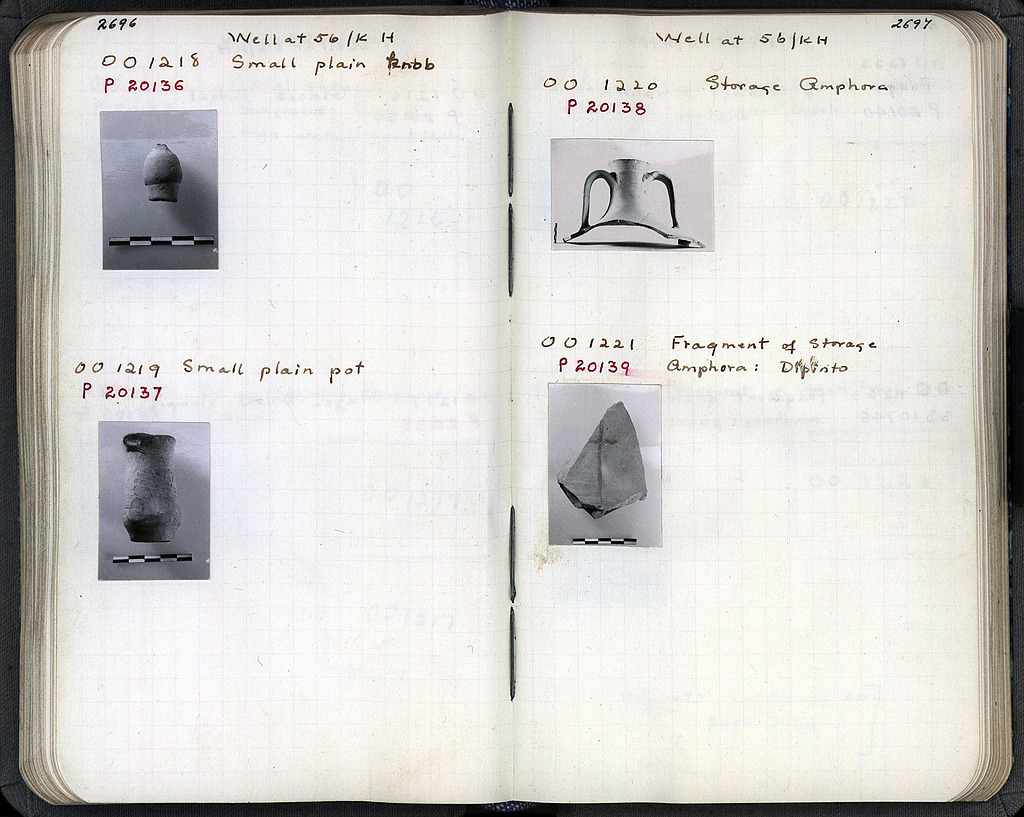 2696
Well at 56/KH
OO 1218 Small plain knob
P 20136
OO 1219 Small plain pot
P 20137
2697
Well at 56/KH
OO 1220 Storage Amphora
P 20138
OO 1221 Fragment of Storage
P 20139 Amphora: